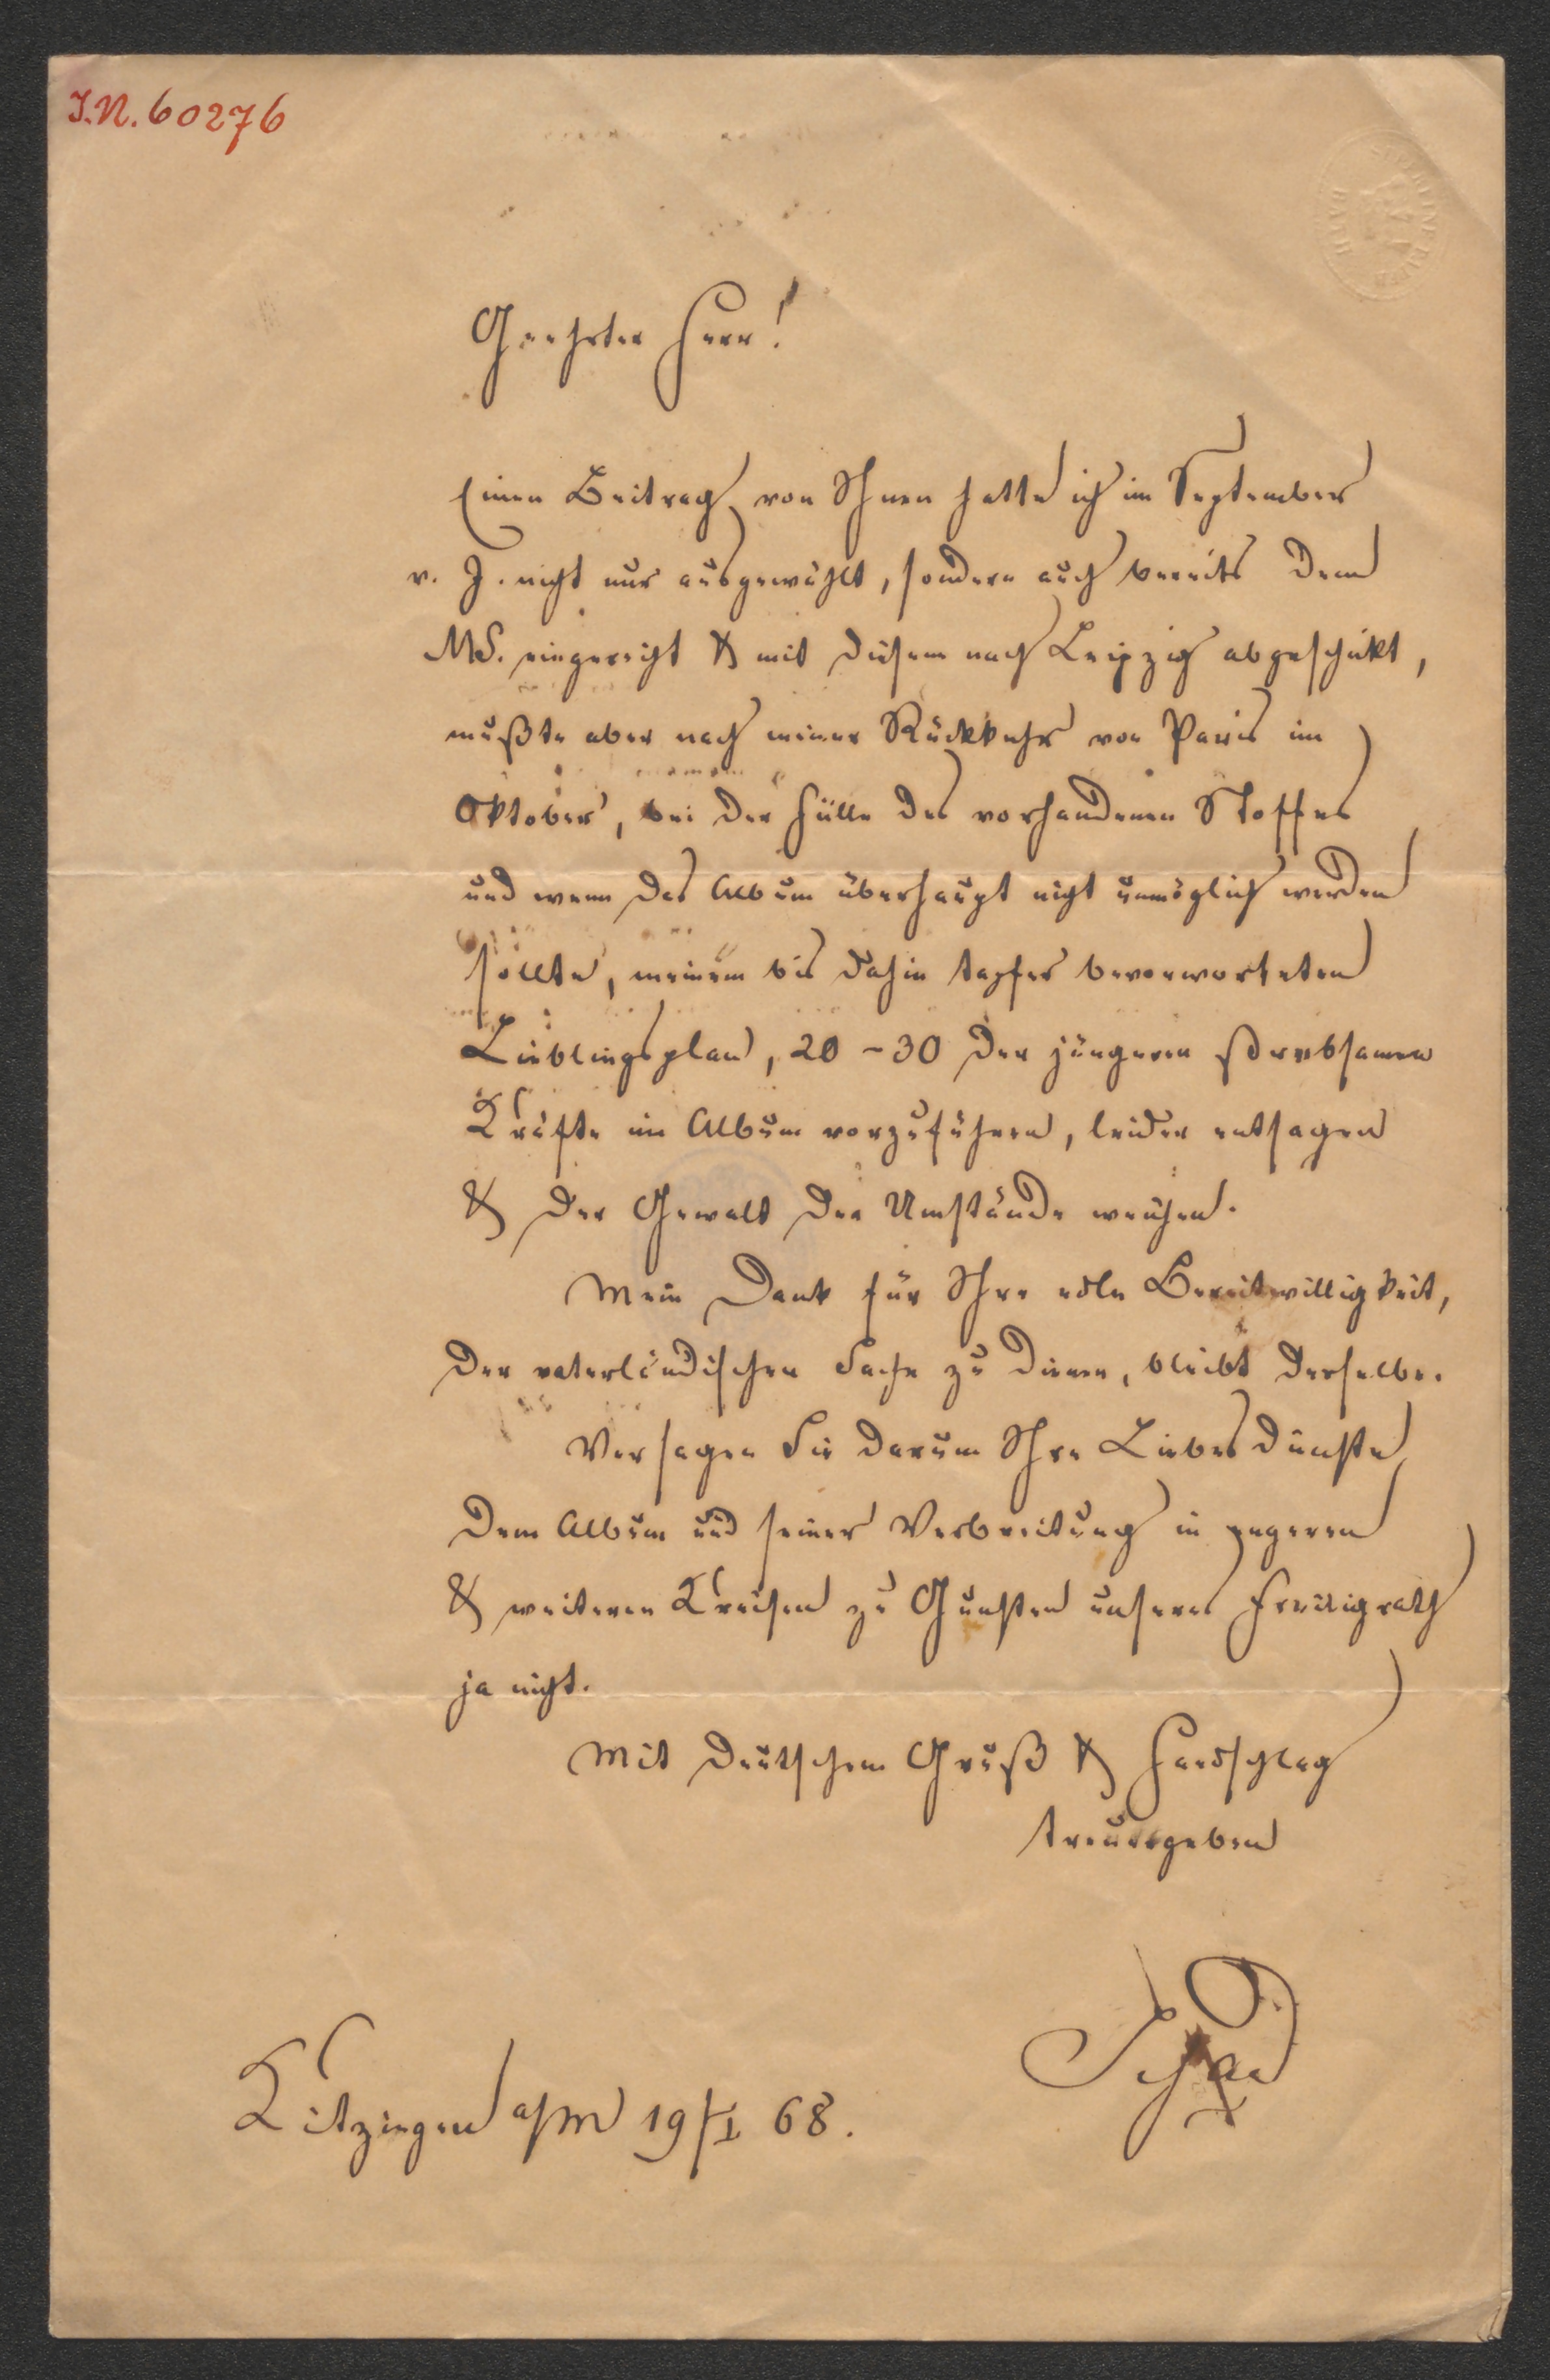 I.N. 60276
Geehrter Herr!
Einen Beitrag von Ihnen hatte ich im September
v. J. nicht nur ausgewählt, sondern auch bereits dem
MS. eingereicht & mit diesem nach Leipzig abgeschickt,
mußte aber nach meiner Rückkehr von Paris im
Oktober, bei der Fülle des vorhandenen Stoffes
und wenn das Album überhaupt nicht unmöglich werden
sollte, meinem bis dahin tapfer bevorworteten
Lieblingsplan, 20–30 der jüngeren strebsamen
Kräfte im Album vorzuführen, leider entsagen
& der Gewalt der Umstände weichen.
Mein Dank für Ihre edle Bereitwilligkeit,
der vaterländischen Sache zu dienen, bleibt derselbe.
Versagen Sie darum Ihre Liebesdienste
dem Album und seiner Verbreitung in engeren
& weiteren Kreisen zu Gunsten unseres Freiligrath
ja nicht.
Mit deutschem Gruß & Handschlag
treuergeben
Schad
Kitzingen a/M 19/I 68.